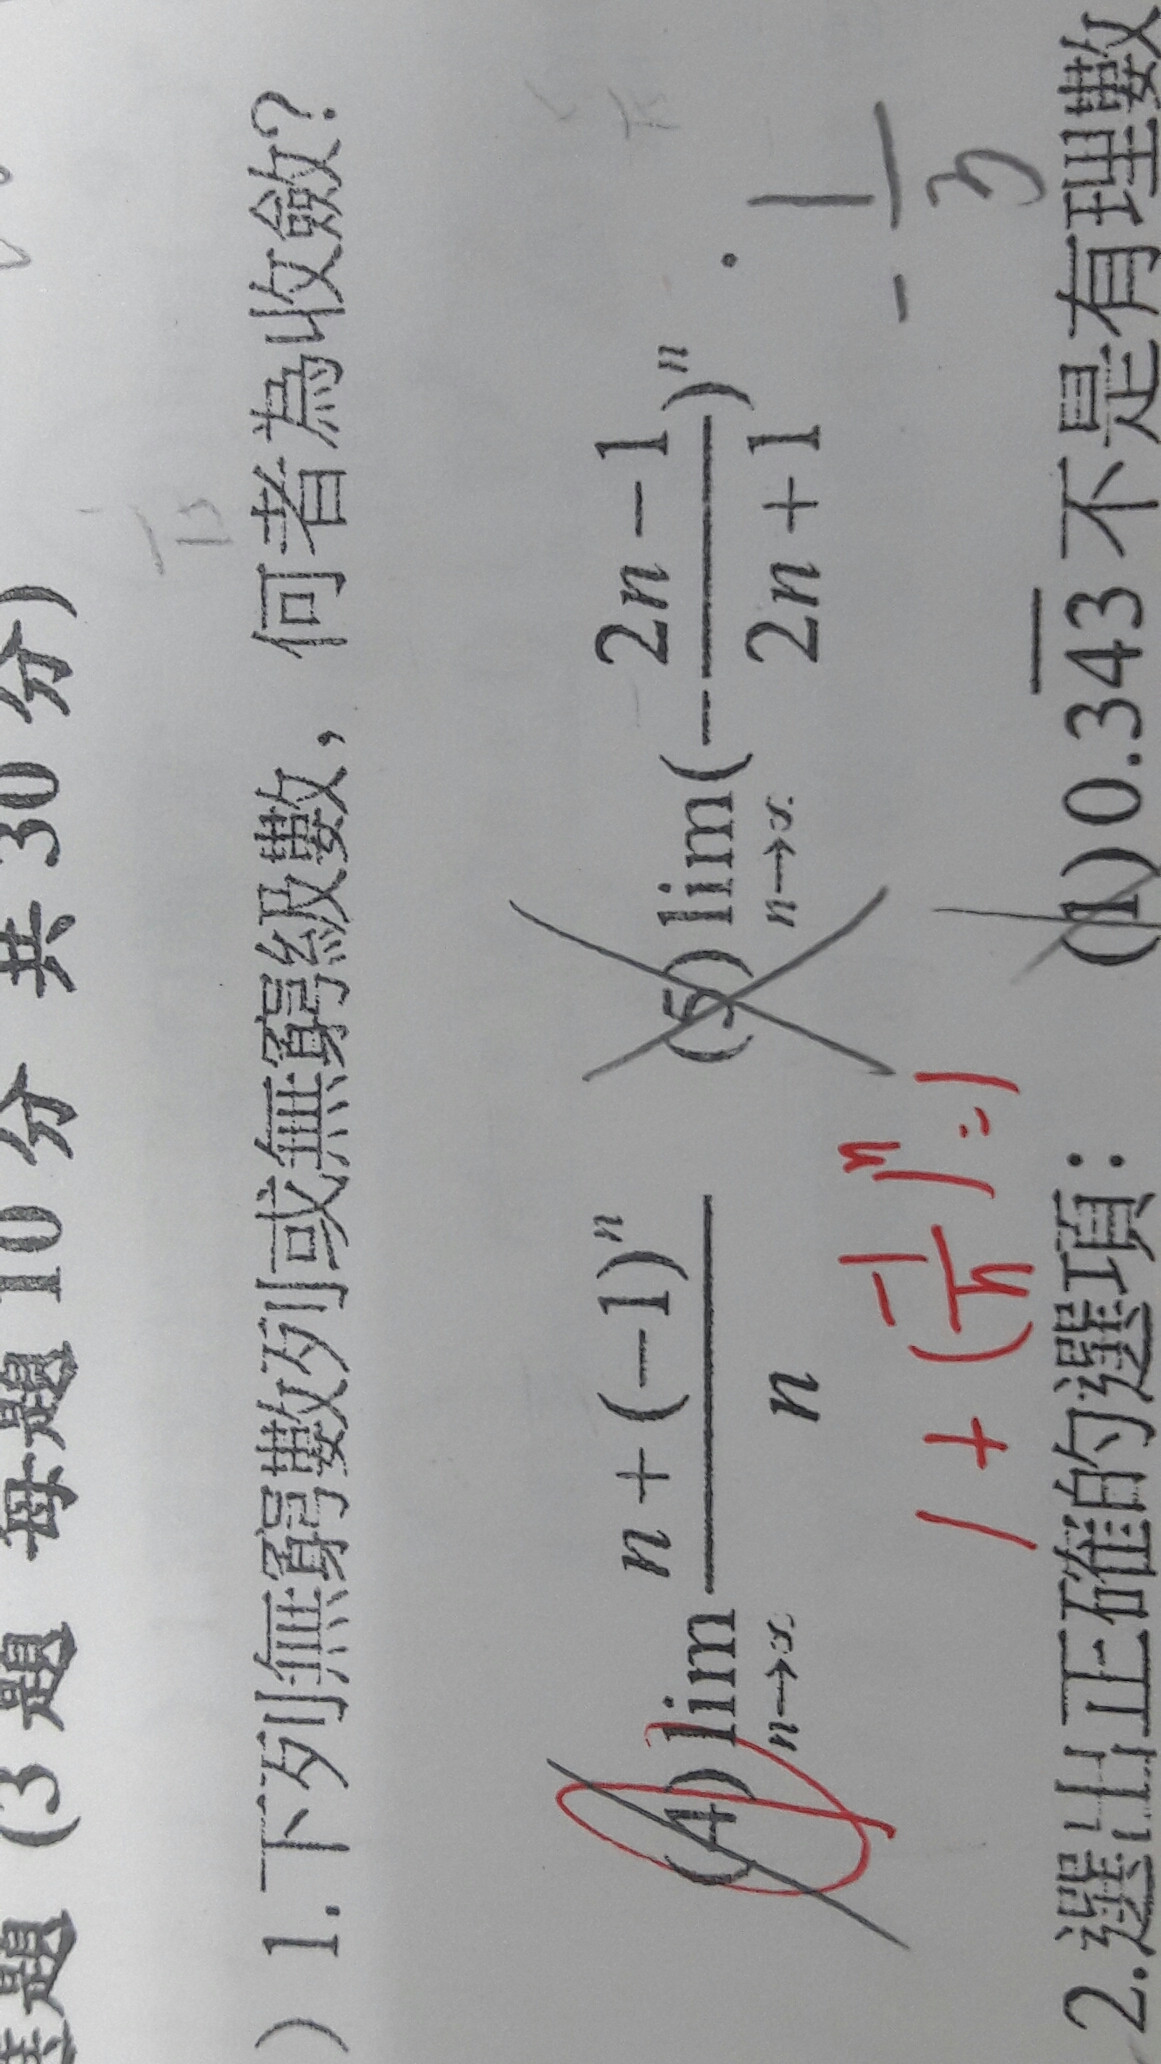 題 (3 題 每題 10 分 共 30 分)
) 1. 下列無窮數列或無窮級數，何者為收斂?
(4) lim n→∞ n + (−1)ⁿ / n (5) lim n→∞ (− 2n − 1 / 2n + 1)ⁿ .
1 + (−1/n)ⁿ = 1
− 1/3
2. 選出正確的選項： (1) 0.343̅ 不是有理數